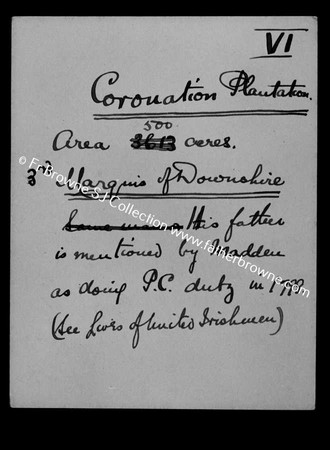 VI
Coronation Plantation.
500
Area 3613 acres.
3rd Marquis of Downshire
Same man His father
is mentioned by Madden
as doing P.C. duty in 1798
(See Lives of United Irishmen)
© Fr Browne S J Collection - Copyright
www.fatherbrowne.com